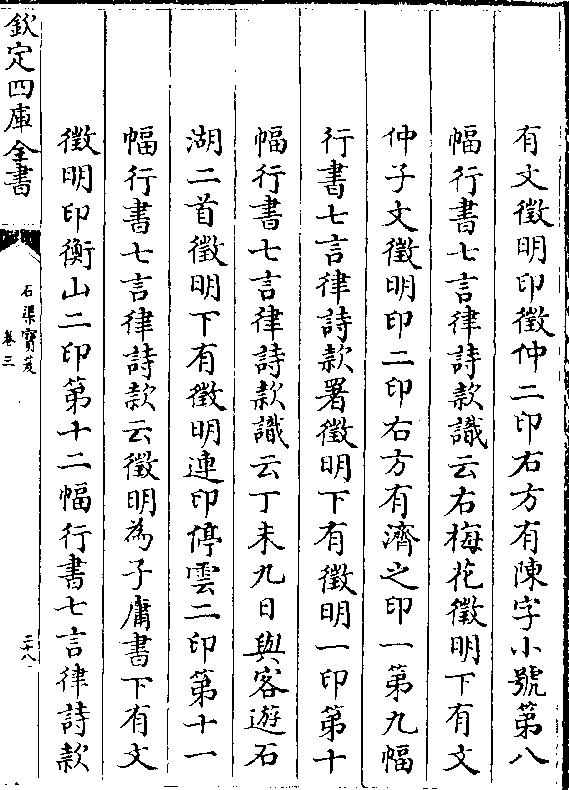 有文徵明印徵仲二印右方有陳字小號第八
幅行書七言律詩款識云右梅花徵明下有文
仲子文徵明印二印右方有濟之印一第九幅
行書七言律詩款署徵明下有徵明一印第十
幅行書七言律詩款識云丁未九日與客遊石
湖二首徵明下有徵明連印停雲二印第十一
幅行書七言律詩款云徵明為子庸書下有文
徵明印衡山二印第十二幅行書七言律詩款
欽定四庫全書
石渠寶笈
卷三
二十八